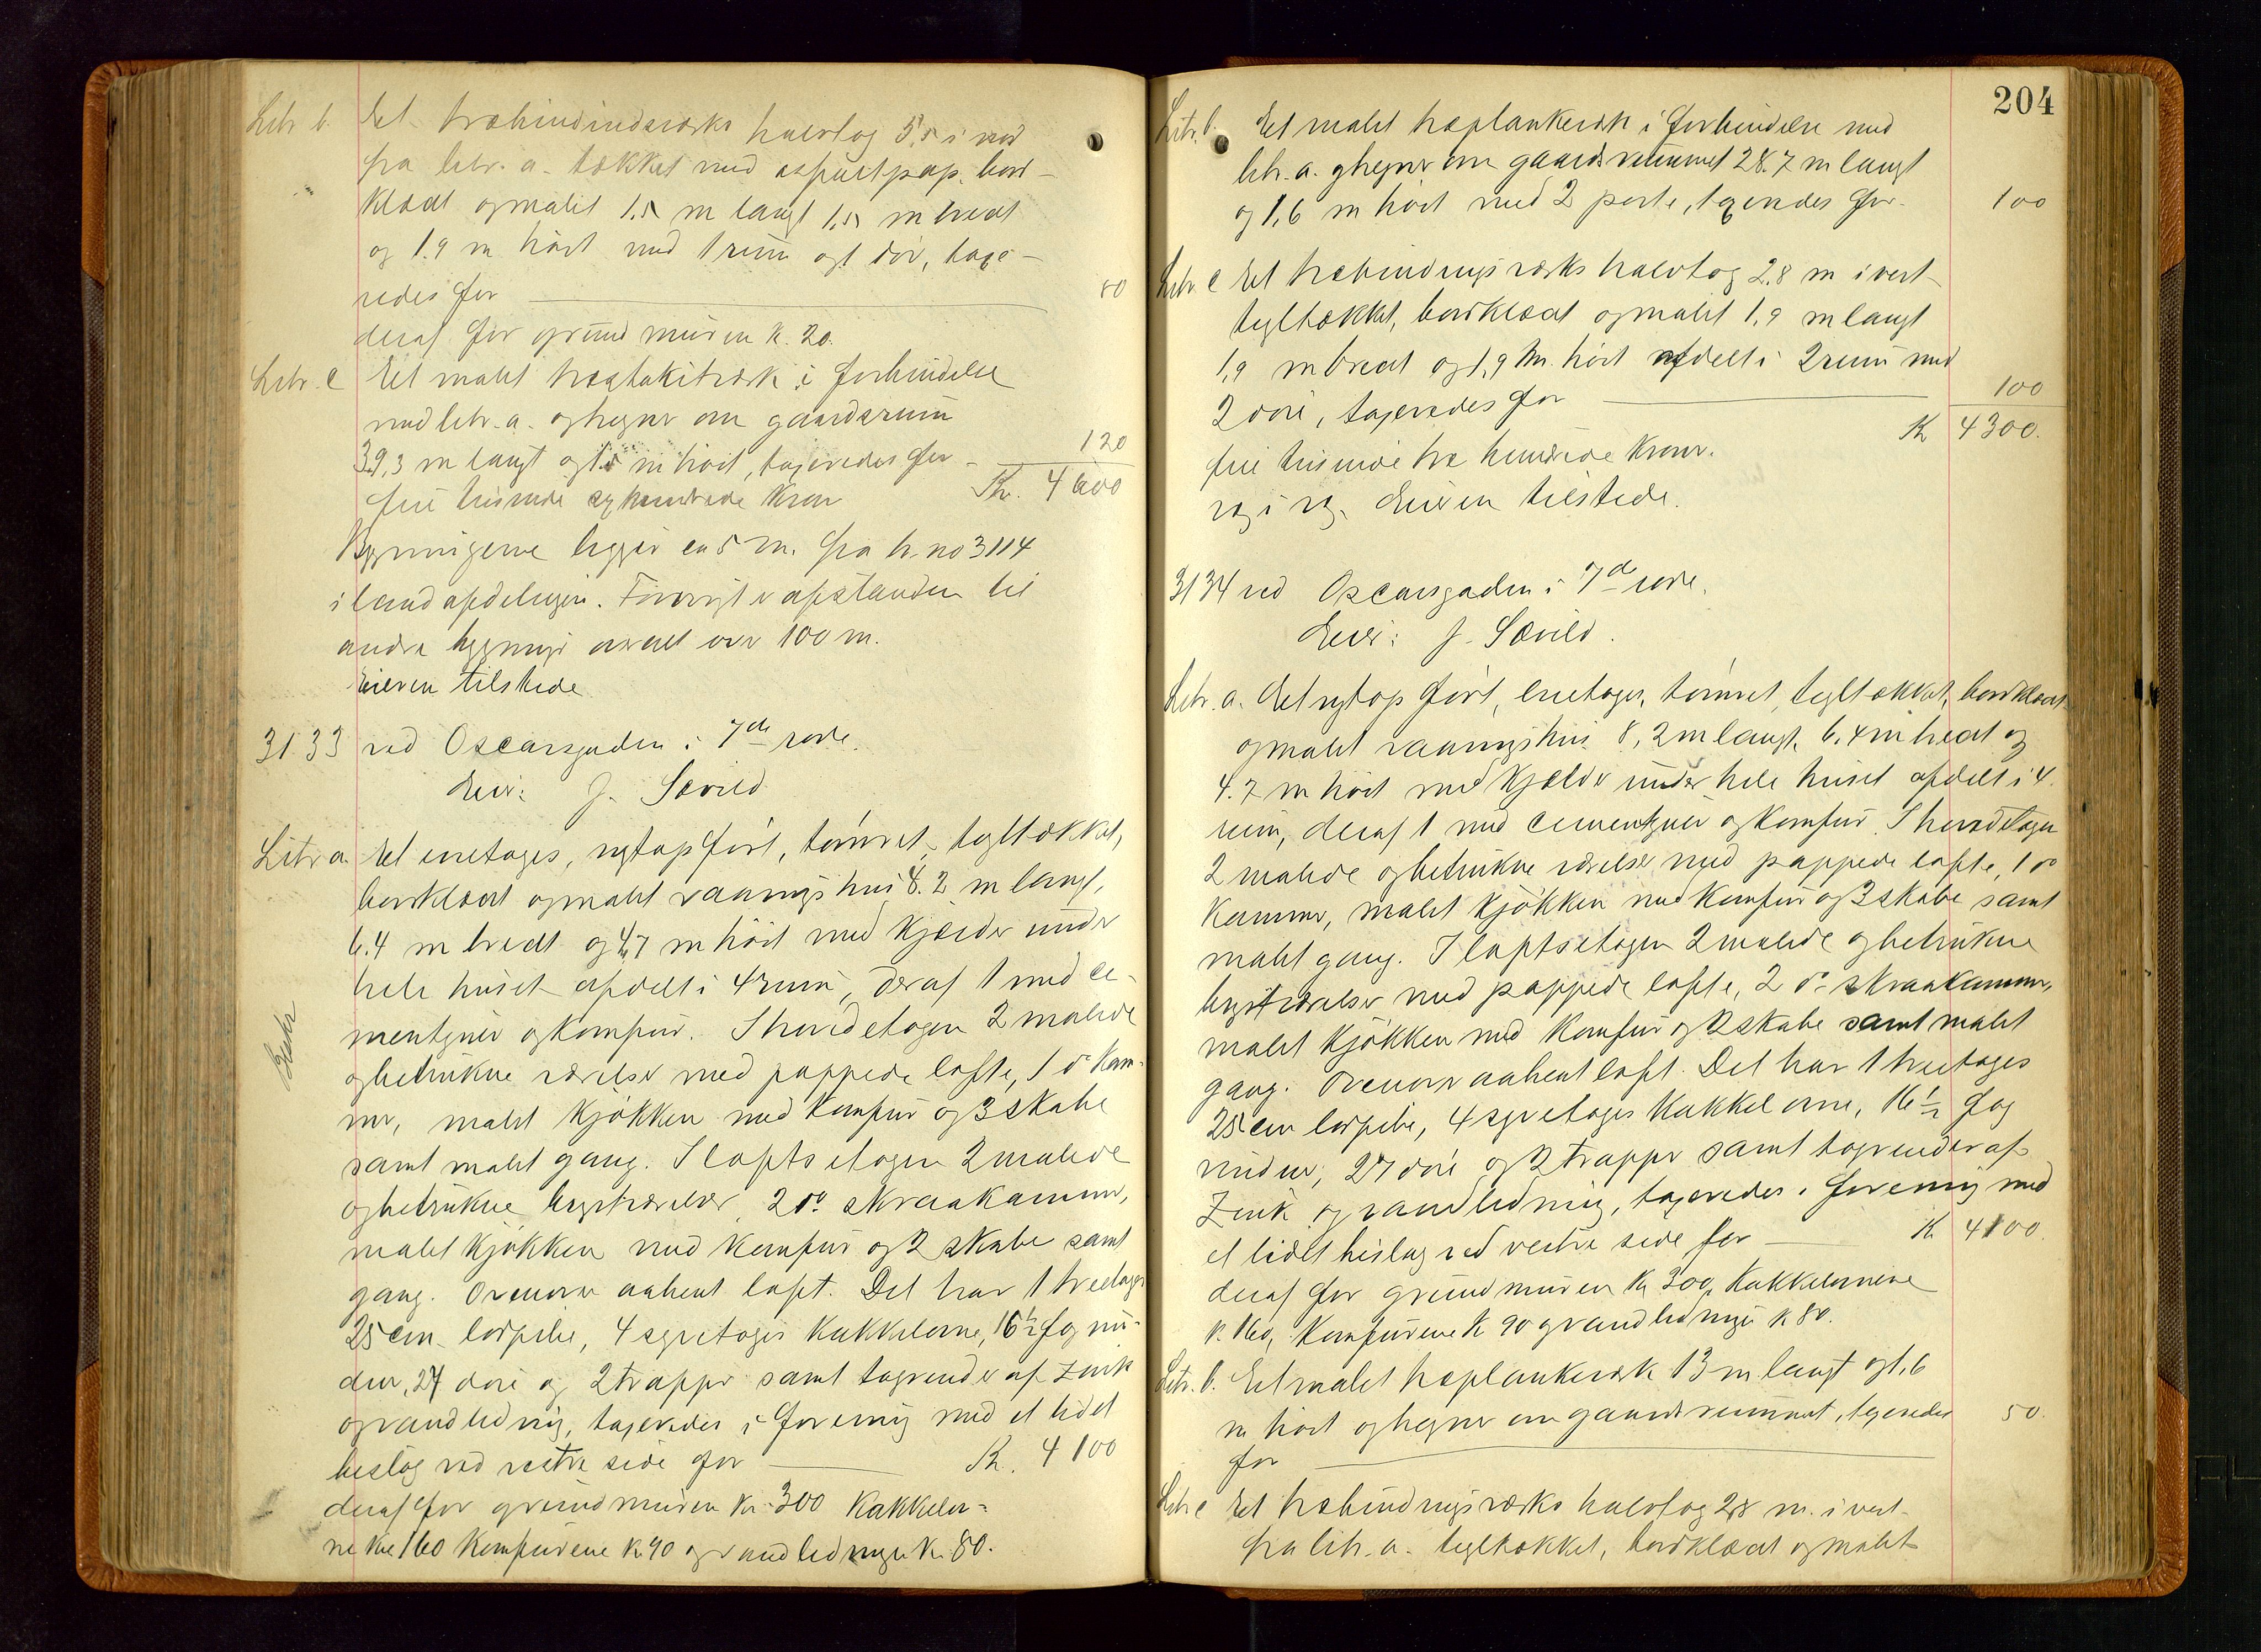 Litr. b. Et træbindindsværks halvtag 5,5 i nord
fra litr. a. tækket med asfaltpap, bord-
klædt og malet 1,5 m langt 1,5 m bredt
og 1.9 m høit med 1 rum og 1 dør, taxe-
redes for 80
deraf for grundmuren k. 20.
Litr. c Et malet træstakitværk i forbindelse
med litr. a. og hegner om gaardsrum
39,3 m langt og m høit, taxeredes for 120
fire tusinde sexhundrede kroner Kr. 4600
Bygningerne ligger ca 5 m. fra h. no 3114
i landafdelingen. Forøvrigt er afstanden til
andre bygninger overalt over 100 m.
Eieren tilstede
3133 ved Oscarsgaden i 7de rode.
Eier: J. Sævild
Litr a. Et enetages, nytopført, tømret, tegltækket,
bordklædt og malet vaaningshus 8.2 m langt,
6.4 m bredt og 4,7 m høit med kjælder under
hele huset afdelt i 4 rum, deraf 1 med ce-
mentgruer og komfur. I hovedetagen 2 malede
og betrukne værelser med pappede lofte, 1 do kam-
mer, malet kjøkken med komfur og 3 skabe
samt malet gang. I loftsetagen 2 malede
og betrukne kvistværelser, 2 do skraakammer,
malet kjøkken med komfur og 2 skabe samt
gang. Ovenover aabent loft. Det har 1 treetages
25 cm. løbpibe, 4 toetages kakkelovne, 16½ fag vin-
duer, 27 døre og 2 trapper samt tagrender af zink
og vandledning, taxeredes i forening med et lidet
bislag ved vestre side for Kr. 4100
deraf for grundmuren kr. 300 kakkelov-
nene 160 komfurene k 90 og vandledningen k. 80.
204
Litr. b. Et malet træplankeværk i forbindelse med
litr. a. og hegner om gaardsrummet 28.7 m langt
og 1,6 m høit med 2 porte, taxeredes for 100
Litr. c Et træbindingsværks halvtag 2,8 m i vest
tegltækket, bordklædt og malet 1,9 m langt
1,9 m bredt og 1,9 m høit afdelt i 2 rum med
2 døre, taxeredes for 100
fire tusinde tre hundrede kroner. Kr 4300.
Eieren tilstede.
3134 ved Oscarsgaden i 7de rode.
Eier: J. Sævild.
Litr. a. Et nytopført, enetages, tømret, tegltækket, bordklædt
og malet vaaningshus 8,2 m langt, 6.4 m bredt og
4.7 m høit med kjælder under hele huset afdelt i 4
rum, deraf 1 med cementgruer og komfur. I hovedetagen
2 malede og betrukne værelser med pappede lofte, 1 do
kammer, malet kjøkken med komfur og 3 skabe samt
malet gang. I loftsetagen 2 malede og betrukne
kvistværelser med pappede lofte, 2 do skraakammer,
malet kjøkken med komfur og 2 skabe samt malet
gang. Ovenover aabent loft. Det har 1 treetages
25 cm løbpibe, 4 toetages kakkelovne, 16½ fag
vinduer, 27 døre og 2 trapper samt tagrender af
zink og vandledning, taxeredes i forening med
et lidet bislag ved vestre side for K 4100.
deraf for grundmuren K 300, kakkelovnene
k. 160, komfurene k 90 og vandledningen k 80.
Litr. b. Et malet træplankeværk 13 m langt og 1,6
m høit og hegner om gaardsrummet, taxeredes 50.
for
Litr. c Et træbindingsværks halvtag 2,8 m. i vest
fra litr. a. tegltækket, bordklædt og malet